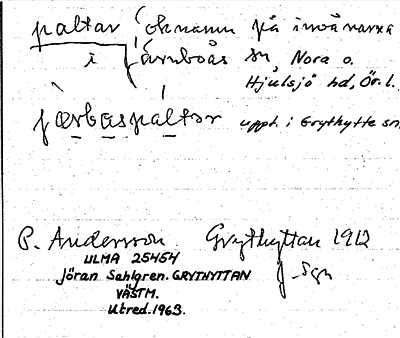 paltar öknamn på invånarna
i Järnboås sn, Nora o.
Hjulsjö hd, Ör.l.
jærbɑspaltør uppt. i Grythytte sn
P. Andersson Grythyttan 1912
J. Sgn
ULMA 25454
Jöran Sahlgren. GRYTHYTTAN
VÄSTM.
Utred. 1963.